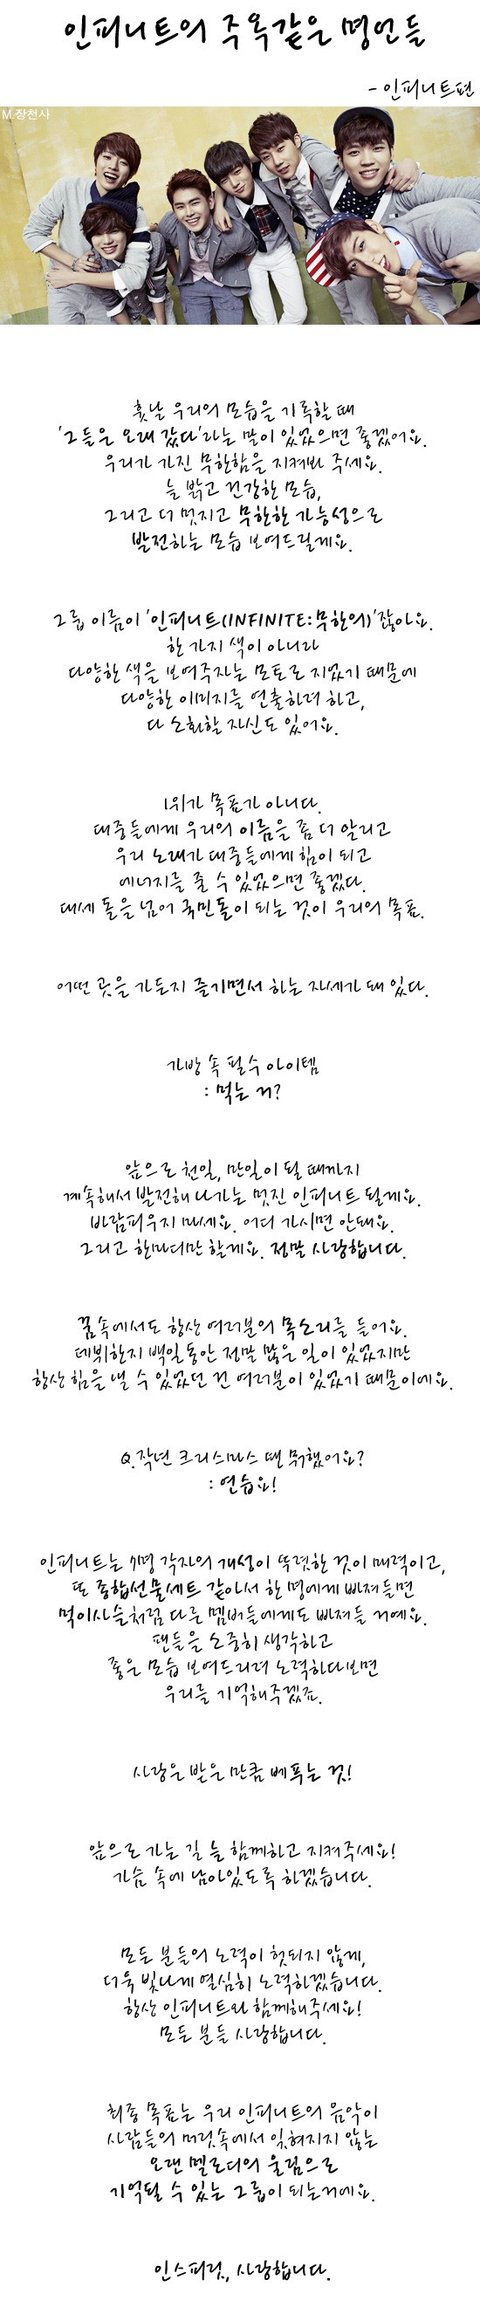 인피니트의 주옥같은 명언들
- 인피니트편
M.장천사
훗날 우리의 모습을 기록할 때
'그들은 오래 갔다'라는 말이 있었으면 좋겠어요.
우리가 가진 무한함을 지켜봐 주세요.
늘 밝고 건강한 모습,
그리고 더 멋지고 무한한 가능성으로
발전하는 모습 보여드릴게요.
그룹 이름이 '인피니트(INFINITE:무한의)'잖아요.
한 가지 색이 아니라
다양한 색을 보여주자는 모토로 지었기 때문에
다양한 이미지를 연출하려 하고,
다 소화할 자신도 있어요.
1위가 목표가 아니다.
대중들에게 우리의 이름을 좀 더 알리고
우리 노래가 대중들에게 힘이 되고
에너지를 줄 수 있었으면 좋겠다.
대세 돌을 넘어 국민돌이 되는 것이 우리의 목표.
어떤 곳을 가든지 즐기면서 하는 자세가 돼 있다.
가방 속 필수 아이템
: 먹는 거?
앞으로 천일, 만일이 될 때까지
계속해서 발전해 나가는 멋진 인피니트 될게요.
바람피우지 마세요. 어디 가시면 안돼요.
그리고 한마디만 할게요. 정말 사랑합니다.
꿈속에서도 항상 여러분의 목소리를 들어요.
데뷔한지 백일동안 정말 많은 일이 있었지만
항상 힘을 낼 수 있었던 건 여러분이 있었기 때문이에요.
Q.작년 크리스마스 땐 뭐했어요?
: 연습요!
인피니트는 7명 각자의 개성이 뚜렷한 것이 매력이고,
또 종합선물세트 같아서 한 명에게 빠져들면
먹이사슬처럼 다른 멤버들에게도 빠져들 거예요.
팬들을 소중히 생각하고
좋은 모습 보여드리려 노력하다보면
우리를 기억해주겠죠.
사랑은 받은 만큼 베푸는 것!
앞으로 가는 길 늘 함께하고 지켜주세요!
가슴 속에 남아있도록 하겠습니다.
모든 분들의 노력이 헛되지 않게,
더욱 빛나게 열심히 노력하겠습니다.
항상 인피니트와 함께해주세요!
모든 분들 사랑합니다.
최종 목표는 우리 인피니트의 음악이
사람들의 머릿속에서 잊혀지지 않는
오랜 멜로디의 울림으로
기억될 수 있는 그룹이 되는거예요.
인스피릿, 사랑합니다.